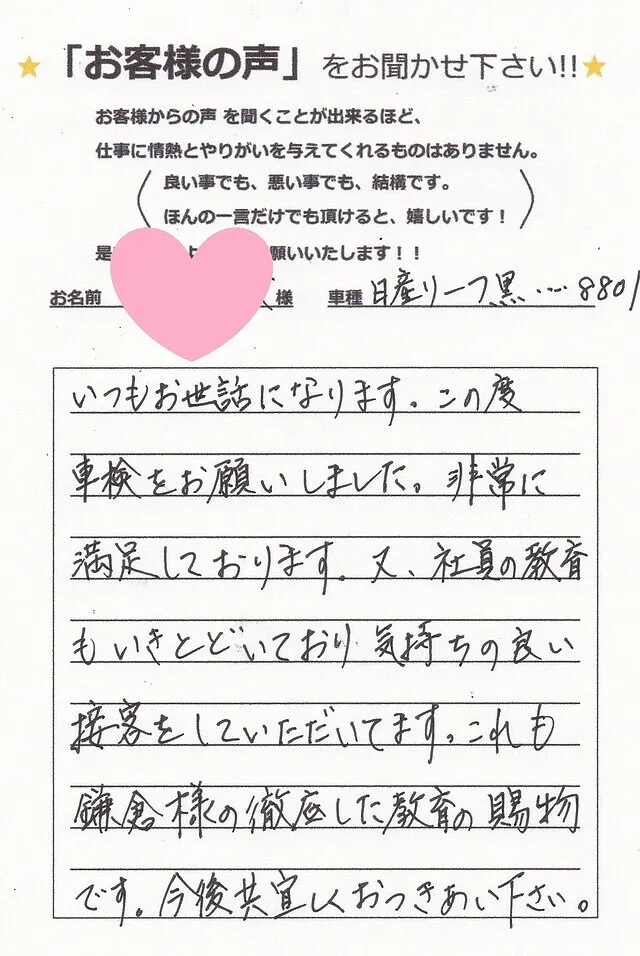 「お客様の声」をお聞かせ下さい!!
お客様からの声 を聞くことが出来るほど、
仕事に情熱とやりがいを与えてくれるものはありません。
良い事でも、悪い事でも、結構です。
ほんの一言だけでも頂けると、嬉しいです！
是 願いいたします！！
お名前 様 車種 日産リーフ黒 .... 8801
いつもお世話になります。この度
車検をお願いしました。非常に
満足しております。又、社員の教育
もいきとどいており気持ちの良い
接客をしていただいてます。これも
鎌倉様の徹底した教育の賜物
です。今後共宜しくおつきあい下さい。